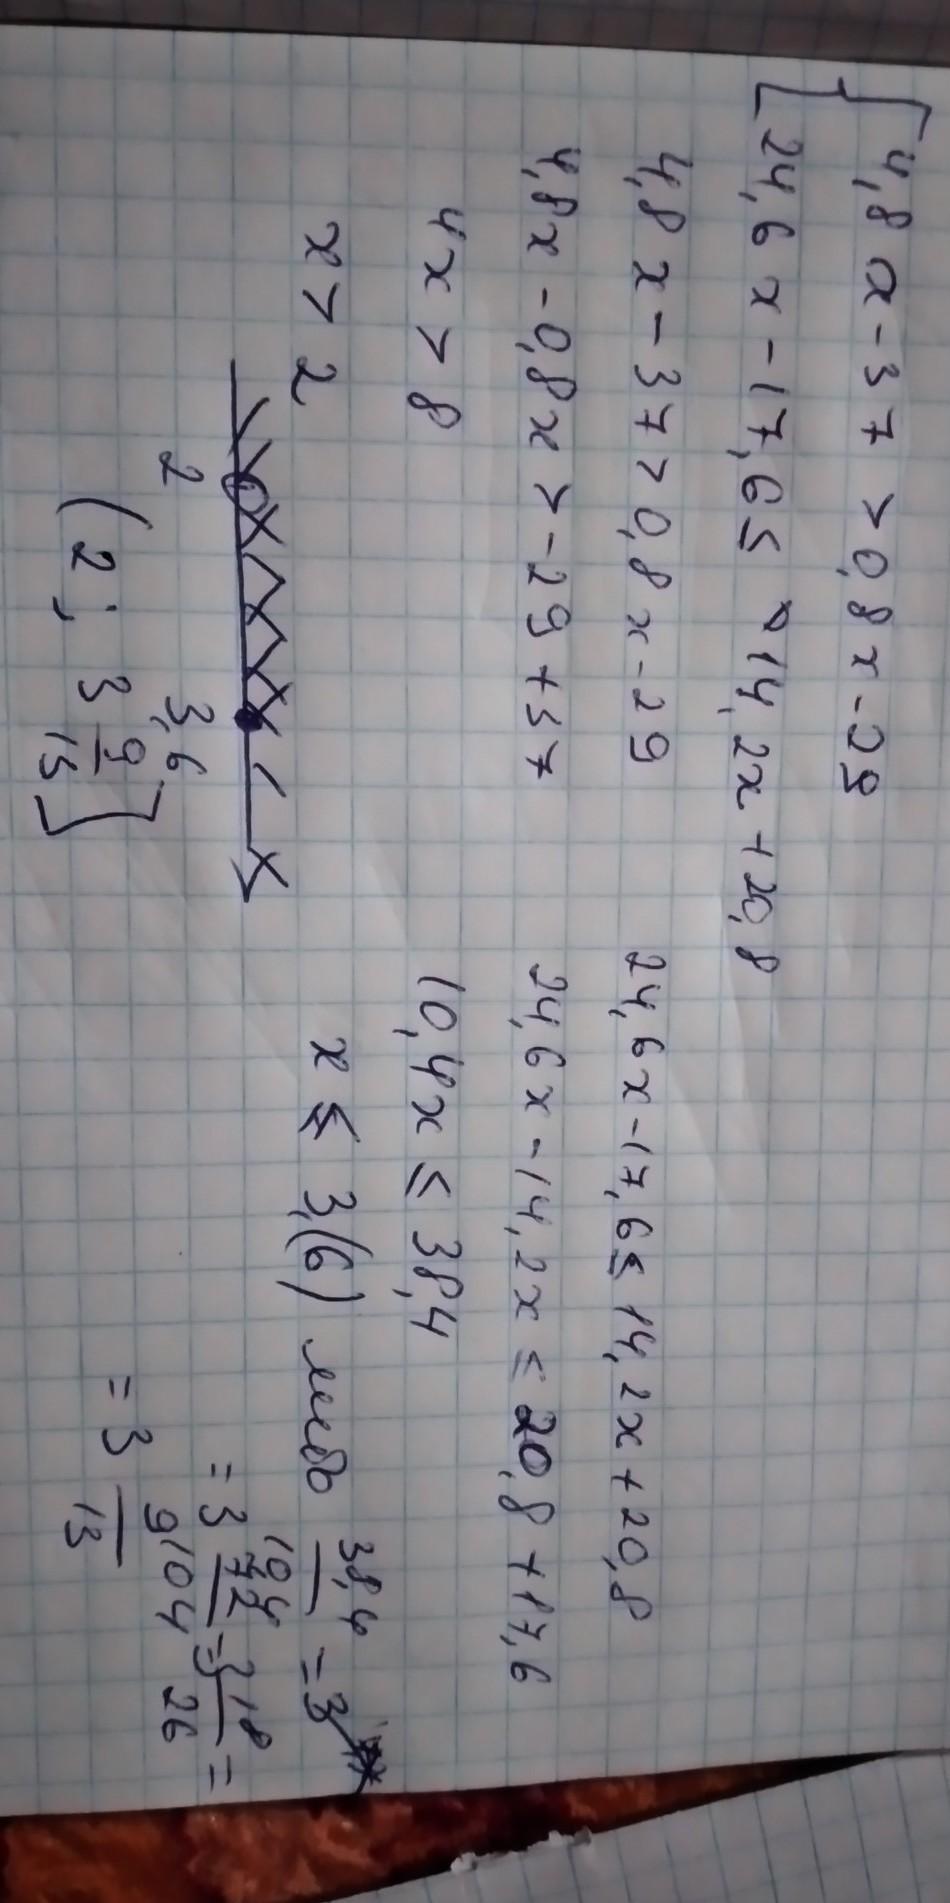 4,8x-37>0,8x-29
24,6x-17,6≤14,2x+20,8
4,8x-37>0,8x-29
4,8x-0,8x>-29+37
4x>8
x>2
24,6x-17,6≤14,2x+20,8
24,6x-14,2x≤20,8+17,6
10,4x≤38,4
x≤3,(6) либо 38,4/10,4=3
=3 72/104=3 18/26=
=3 9/13
2 3,6
(2; 3 9/13]